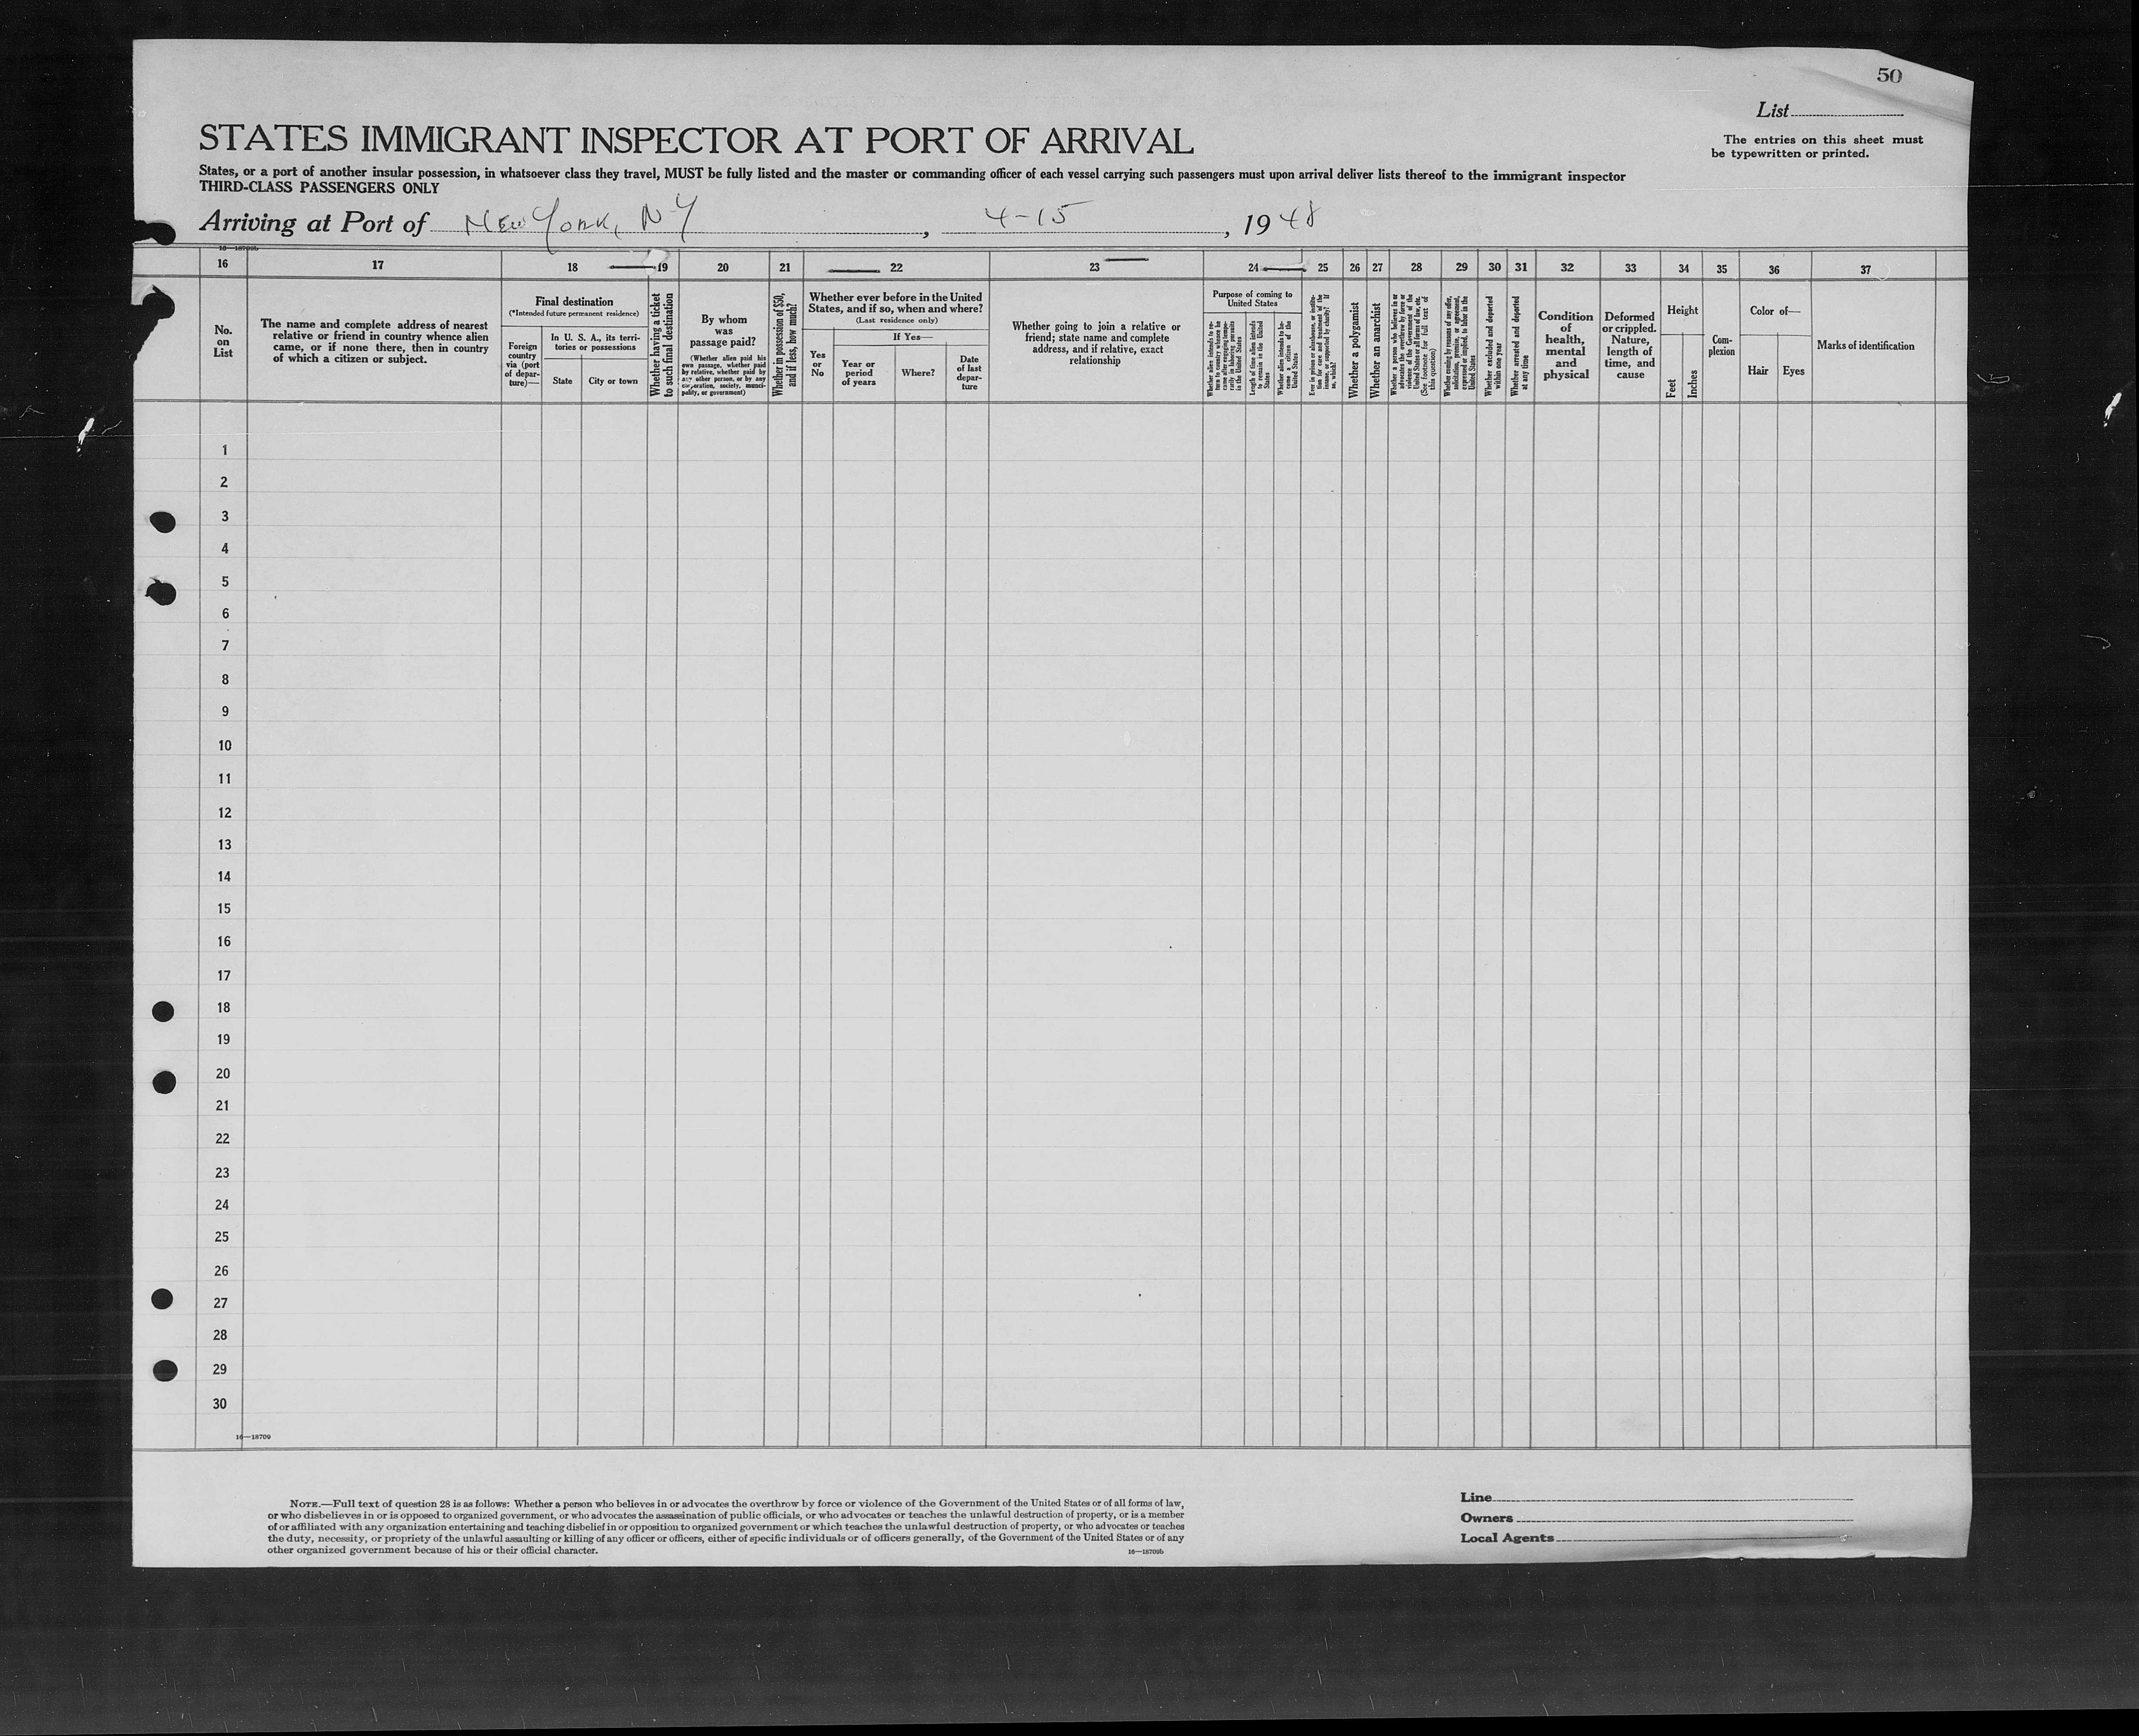 50
List
STATES IMMIGRANT INSPECTOR AT PORT OF ARRIVAL
The entries on this sheet must
be typewritten or printed.
States, or a port of another insular possession, in whatsoever class they travel, MUST be fully listed and the master or commanding officer of each vessel carrying such passengers must upon arrival deliver lists thereof to the immigrant inspector
THIRD-CLASS PASSENGERS ONLY
Arriving at Port of New York, NY, 4-15, 1948
16—18709b
16 17 18 19 20 21 22 23 24 25 26 27 28 29 30 31 32 33 34 35 36 37
No.
on
List
The name and complete address of nearest
relative or friend in country whence alien
came, or if none there, then in country
of which a citizen or subject.
Final destination
(*Intended future permanent residence)
Foreign
country
via (port
of depar-
ture)—
In U. S. A., its terri-
tories or possessions
State
City or town
Whether having a ticket
to such final destination
By whom
was
passage paid?
(Whether alien paid his
own passage, whether paid
by relative, whether paid by
any other person, or by any
corporation, society, munici-
pality, or government)
Whether in possession of $50,
and if less, how much?
Whether ever before in the United
States, and if so, when and where?
(Last residence only)
Yes
or
No
If Yes—
Year or
period
of years
Where?
Date
of last
depar-
ture
Whether going to join a relative or
friend; state name and complete
address, and if relative, exact
relationship
Purpose of coming to
United States
Whether alien intends to re-
turn to country whence he
came after engaging tempo-
rarily in laboring pursuits
in the United States
Length of time alien intends
to remain in the United
States
Whether alien intends to be-
come a citizen of the
United States
Ever in prison or almshouse, or institu-
tion for care and treatment of the
insane, or supported by charity? If
so, which?
Whether a polygamist
Whether an anarchist
Whether a person who believes in or
advocates the overthrow by force or
violence of the Government of the
United States or all forms of law, etc.
(See footnote for full text of
this question)
Whether coming by reasons of any offer,
solicitation, promise, or agreement,
expressed or implied, to labor in the
United States
Whether excluded and deported
within one year
Whether arrested and deported
at any time
Condition
of
health,
mental
and
physical
Deformed
or crippled.
Nature,
length of
time, and
cause
Height
Feet
Inches
Com-
plexion
Color of—
Hair
Eyes
Marks of identification
1
2
3
4
5
6
7
8
9
10
11
12
13
14
15
16
17
18
19
20
21
22
23
24
25
26
27
28
29
30
16—18709
NOTE.—Full text of question 28 is as follows: Whether a person who believes in or advocates the overthrow by force or violence of the Government of the United States or of all forms of law,
or who disbelieves in or is opposed to organized government, or who advocates the assassination of public officials, or who advocates or teaches the unlawful destruction of property, or is a member
of or affiliated with any organization entertaining and teaching disbelief in or opposition to organized government or which teaches the unlawful destruction of property, or who advocates or teaches
the duty, necessity, or propriety of the unlawful assaulting or killing of any officer or officers, either of specific individuals or of officers generally, of the Government of the United States or of any
other organized government because of his or their official character.
16—18709b
Line
Owners
Local Agents